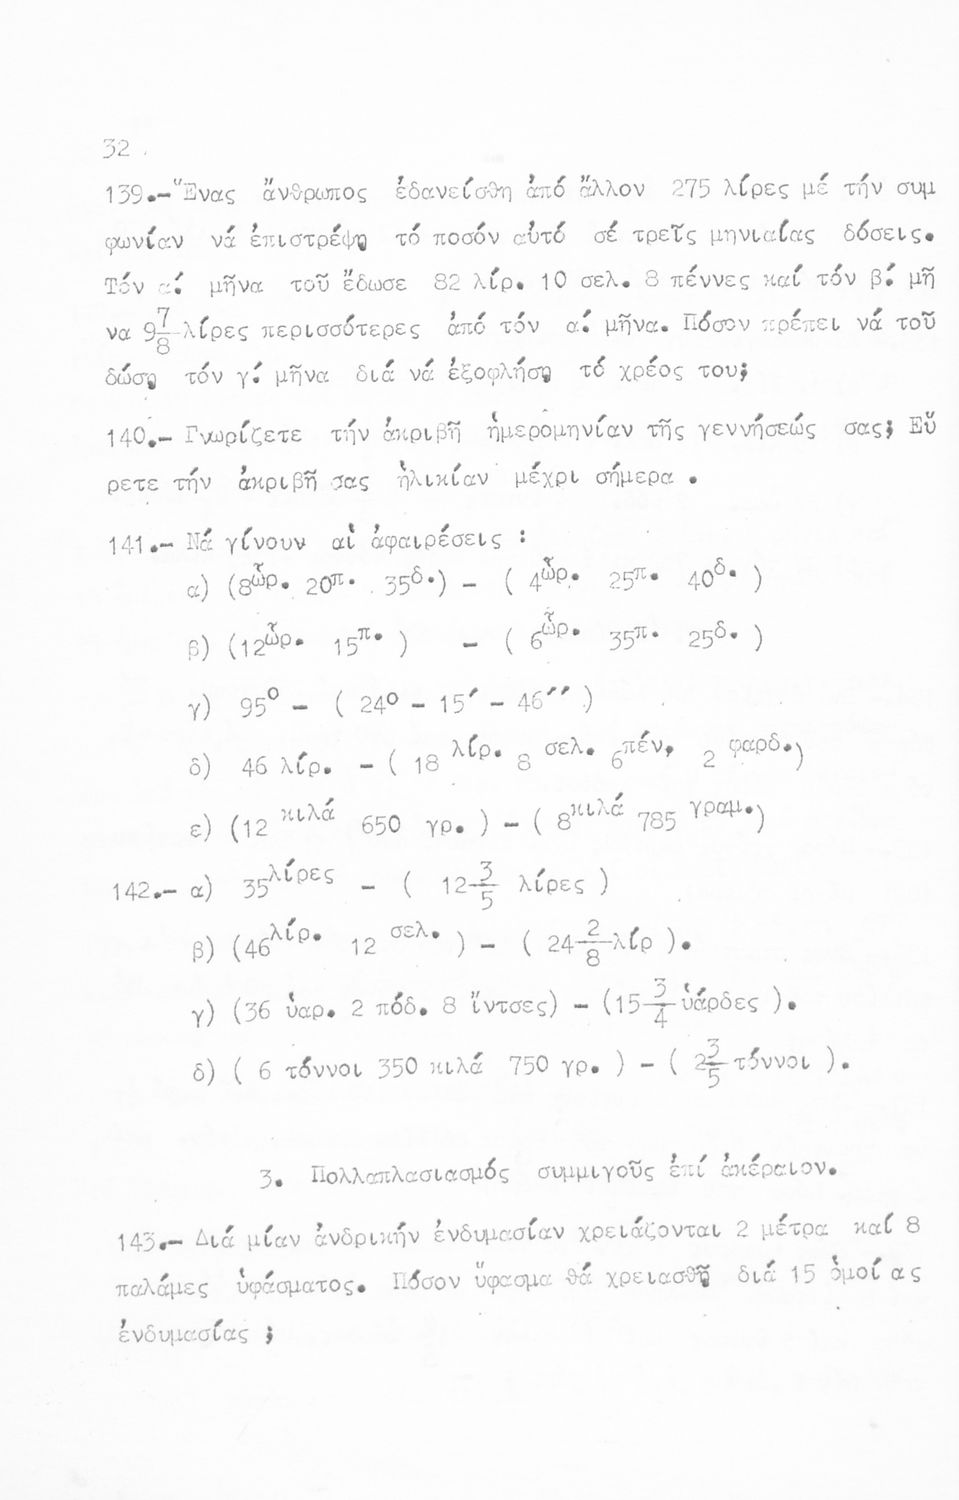 32 .
139.-Ἕνας ἄνθρωπος ἐδανείσθη ἀπό ἄλλον 275 λίρες μέ τήν συμ
φωνίαν νά ἐπιστρέψῃ τό ποσόν αὐτό σέ τρεῖς μηνιαίας δόσεις.
Τόν α΄ μῆνα τοῦ ἔδωσε 82 λίρ. 10 σελ. 8 πέννες καί τόν β΄ μῆ
να 9 7/8 λίρες περισσότερες ἀπό τόν α΄ μῆνα. Πόσον πρέπει νά τοῦ
δώσῃ τόν γ΄ μῆνα διά νά ἐξοφλήσῃ τό χρέος του;
140.- Γνωρίζετε τήν ἀκριβῆ ἡμερομηνίαν τῆς γεννήσεώς σας; Εὕ
ρετε τήν ἀκριβῆ σας ἡλικίαν μέχρι σήμερα .
141.- Νά γίνουν αἱ ἀφαιρέσεις :
α) (8ὧρ. 20π. 35δ.) - ( 4ὧρ. 25π. 40δ. )
β) (12ὧρ. 15π. ) - ( 6ὧρ. 35π. 25δ. )
γ) 95° - ( 24° - 15΄ - 46΄΄ )
δ) 46 λίρ. - ( 18 λίρ. 8 σελ. 6 πέν. 2 φαρδ.)
ε) (12 κιλά 650 γρ. ) - ( 8 κιλά 785 γραμ.)
142.- α) 35 λίρες - ( 12 3/5 λίρες )
β) (46 λίρ. 12 σελ. ) - ( 24 2/8 λίρ ).
γ) (36 ὑαρ. 2 πόδ. 8 ἴντσες) - (15 3/4 ὑάρδες ).
δ) ( 6 τόννοι 350 κιλά 750 γρ. ) - ( 2 3/5 τόννοι ).
3. Πολλαπλασιασμός συμμιγοῦς ἐπί ἀκέραιον.
143.- Διά μίαν ἀνδρικήν ἐνδυμασίαν χρειάζονται 2 μέτρα καί 8
παλάμες ὑφάσματος. Πόσον ὕφασμα θά χρειασθῇ διά 15 ὁμοίας
ἐνδυμασίας ;